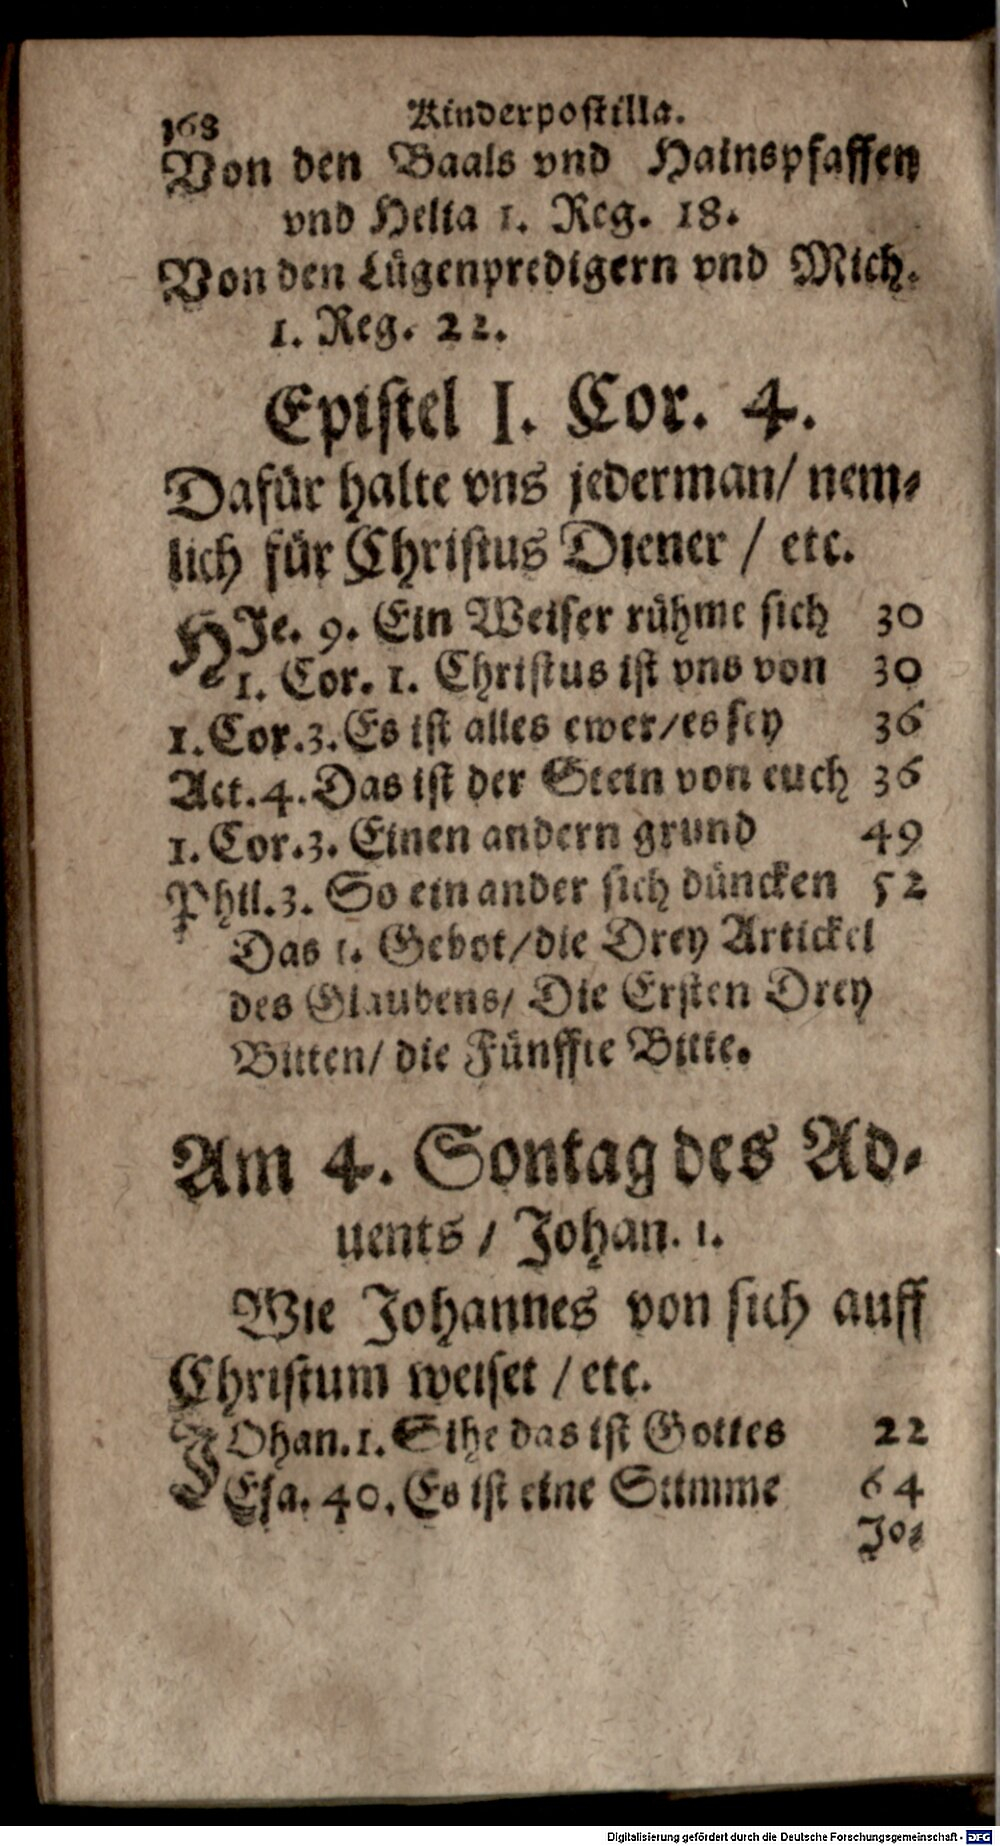 168 Kinderpostilla.
Von den Baals vnd Hainspfaffen
vnd Helia 1. Reg. 18.
Von den Lügenpredigern vnd Mich.
1. Reg. 22.
Epistel I. Cor. 4.
Dafür halte vns jederman/ nem-
lich für Christus Diener / etc.
HJe. 9. Ein Weiser rühme sich 30
1. Cor. 1. Christus ist vns von 30
1. Cor. 3. Es ist alles ewer/es sey 36
Act. 4. Das ist der Stein von euch 36
1. Cor. 3. Einen andern grund 49
Phil. 3. So ein ander sich düncken 52
Das 1. Gebot/die Drey Artickel
des Glaubens/ Die Ersten Drey
Bitten/ die Fünffte Bitte.
Am 4. Sontag des Ad-
uents / Johan. 1.
Wie Johannes von sich auff
Christum weiset / etc.
JOhan. 1. Sihe das ist Gottes 22
Esa. 40. Es ist eine Stimme 64
Jo-
Digitalisierung gefördert durch die Deutsche Forschungsgemeinschaft - DFG